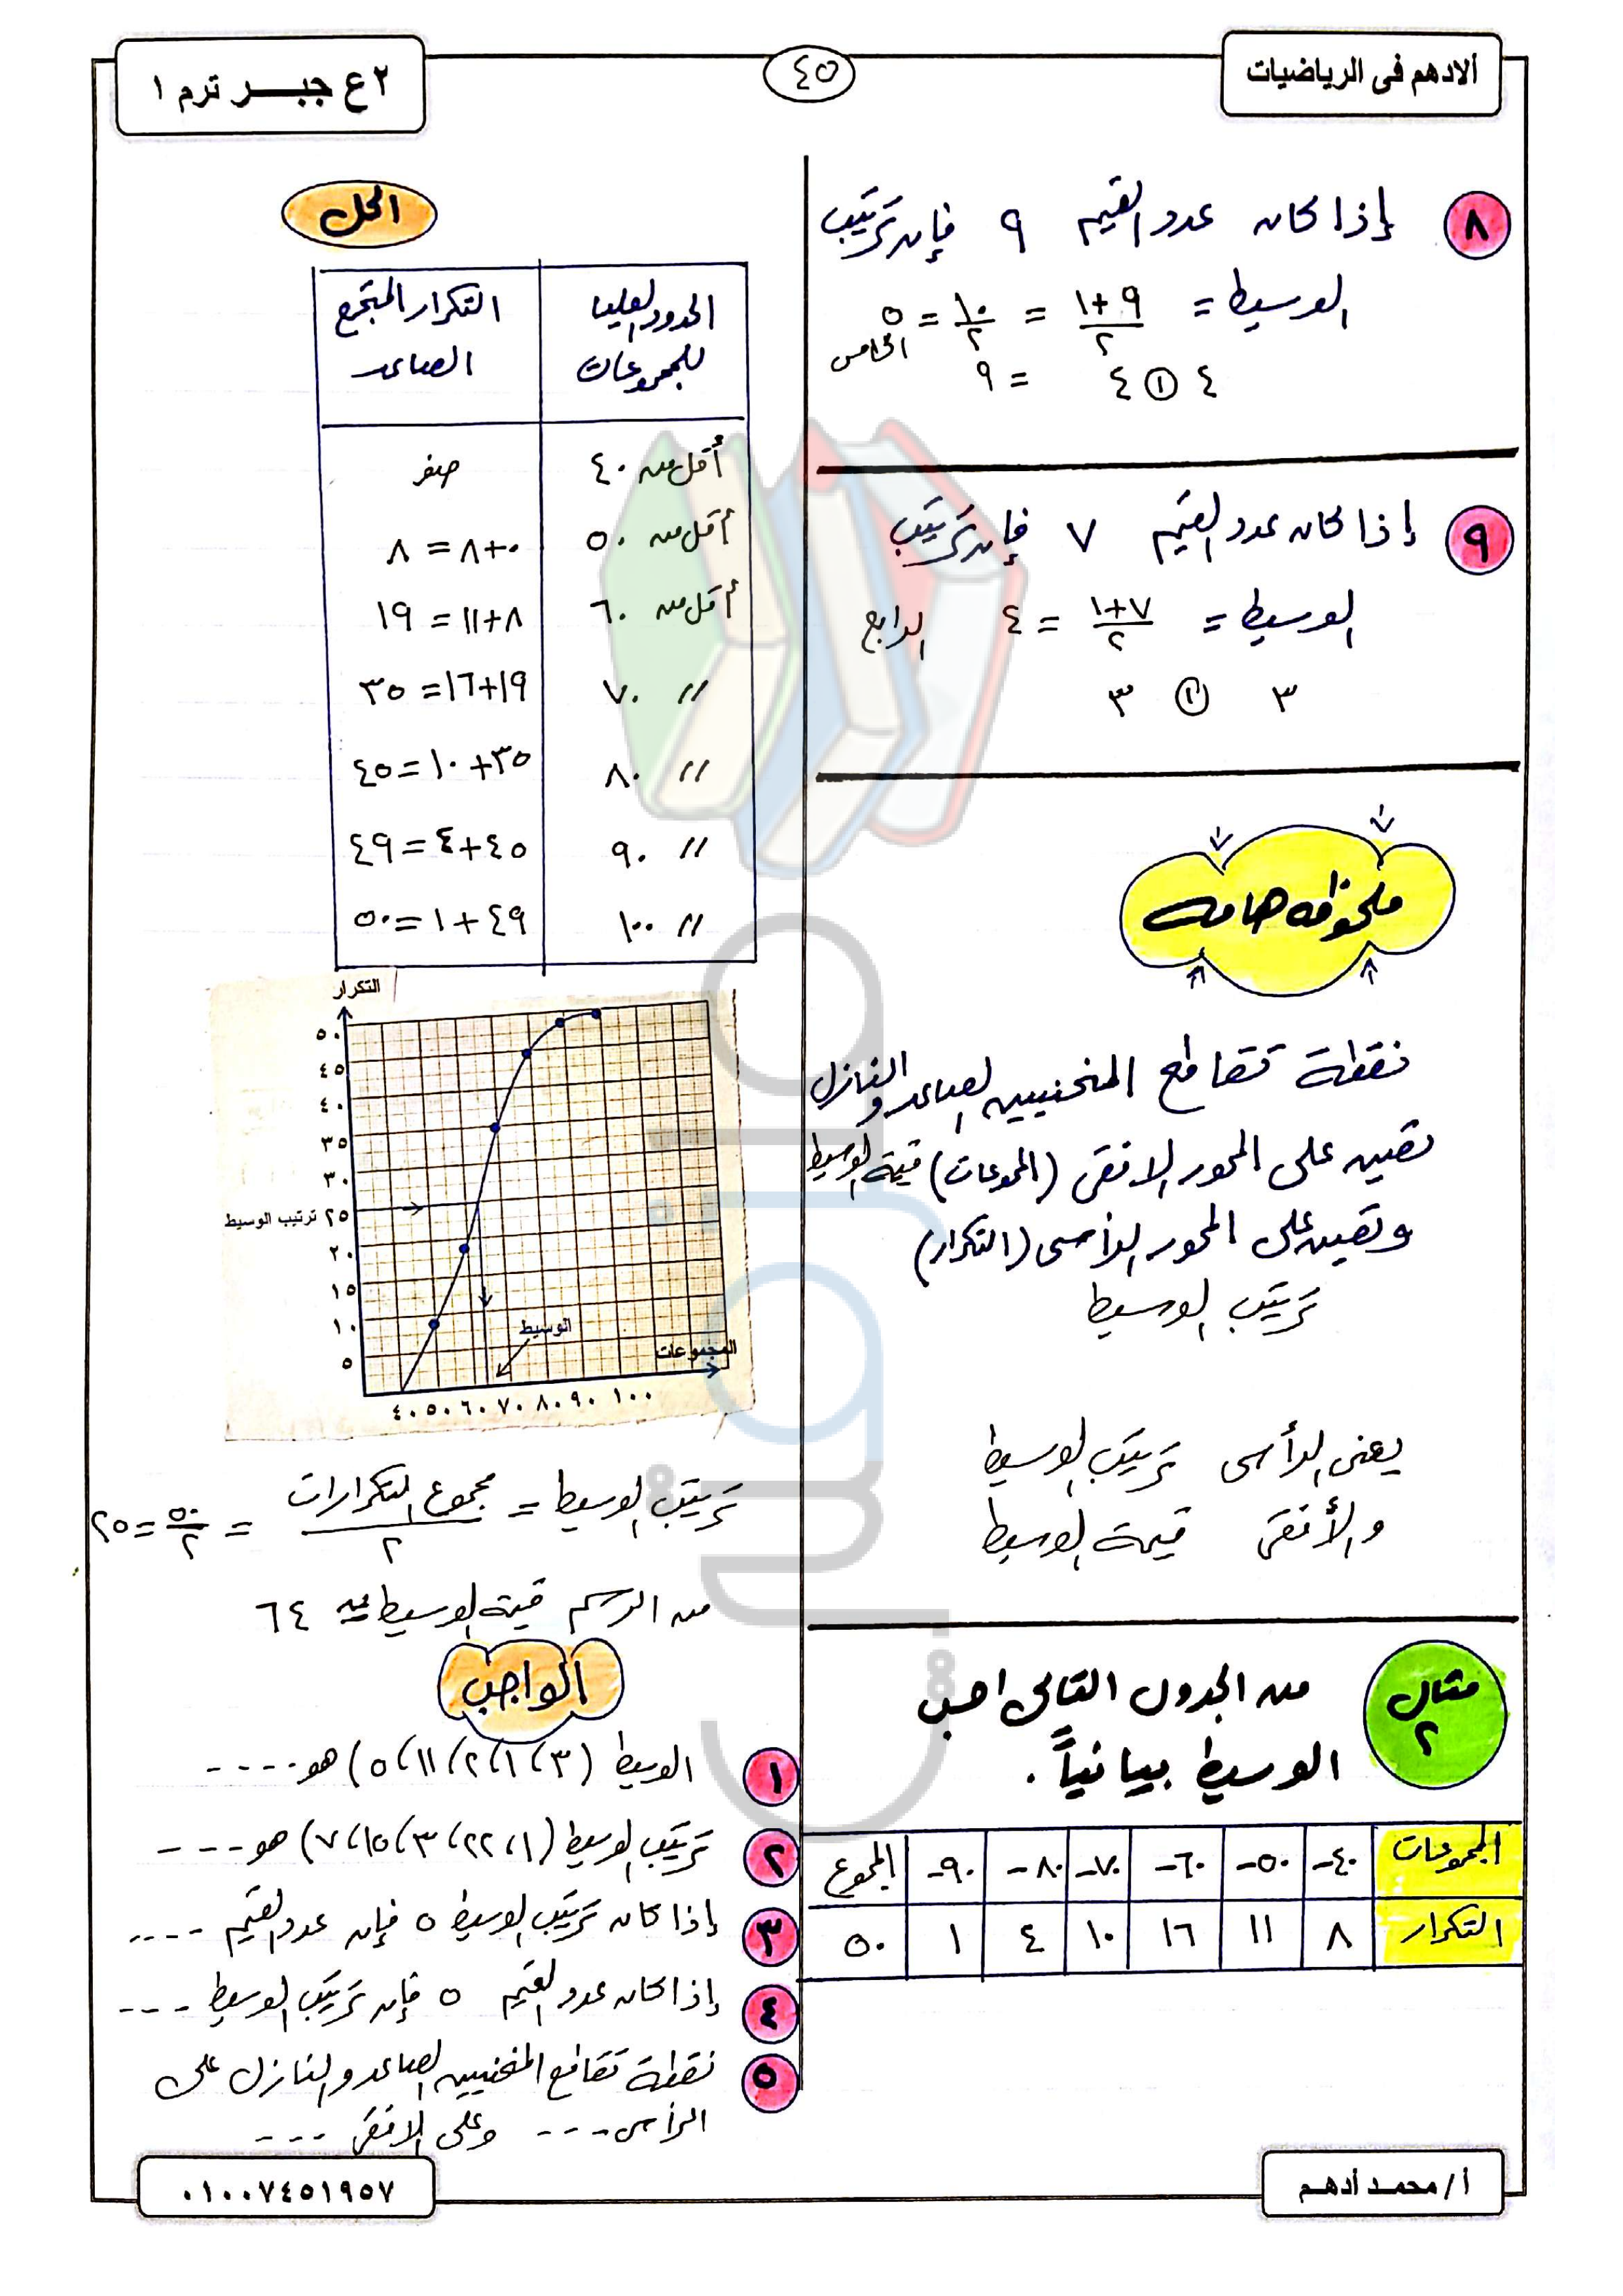 ألادهم فى الرياضيات
٤٥
٢ ع جبـــر ترم ١
٨ إذا كان عدد القيم ٩ فإن ترتيب
الوسيط = ٩+١/٢ = ١٠/٢ = ٥ الخامس
٤ ① ٤ = ٩
٩ إذا كان عدد القيم ٧ فإن ترتيب
الوسيط = ٧+١/٢ = ٤ الرابع
٣ ① ٣
ملحوظه هامه
نقطة تقاطع المنحنيين الصاعد والنازل
تعين على المحور الافقى (المجموعات) قيمة الوسيط
وتعين على المحور الرأسى (التكرار)
ترتيب الوسيط
يعنى الرأسى ترتيب الوسيط
والأفقى قيمة الوسيط
مثال ٢ من الجدول التالى احسب
الوسيط بيانياً .
المجموعات ٤٠- ٥٠- ٦٠- ٧٠- ٨٠- ٩٠- المجموع
التكرار ٨ ١١ ١٦ ١٠ ٤ ١ ٥٠
الحل
الحدود العليا للمجموعات التكرار المتجمع الصاعد
أقل من ٤٠ صفر
أقل من ٥٠ ٠+٨ = ٨
أقل من ٦٠ ٨+١١ = ١٩
// ٧٠ ١٩+١٦= ٣٥
// ٨٠ ٣٥+١٠=٤٥
// ٩٠ ٤٥+٤=٤٩
// ١٠٠ ٤٩+١=٥٠
التكرار
٥٠
٤٥
٤٠
٣٥
٣٠
٢٥ ترتيب الوسيط
٢٠
١٥
١٠
٥
الوسيط
المجموعات
٤٠ ٥٠ ٦٠ ٧٠ ٨٠ ٩٠ ١٠٠
ترتيب الوسيط = مجموع التكرارات/٢ = ٥٠/٢ = ٢٥
من الرسم قيمة الوسيط ≃ ٦٤
الواجب
١ الوسيط (٣، ١، ٢، ١١، ٥) هو ----
٢ ترتيب الوسيط (١، ٢٢، ٣، ١٥، ٧) هو ---
٣ إذا كان ترتيب الوسيط ٥ فإن عدد القيم ----
٤ إذا كان عدد القيم ٥ فإن ترتيب الوسيط ---
٥ نقطة تقاطع المنحنيين الصاعد والنازل على
الرأسى --- وعلى الافقى ---
أ / محمـد أدهـم
٠١٠٠٧٤٥١٩٥٧